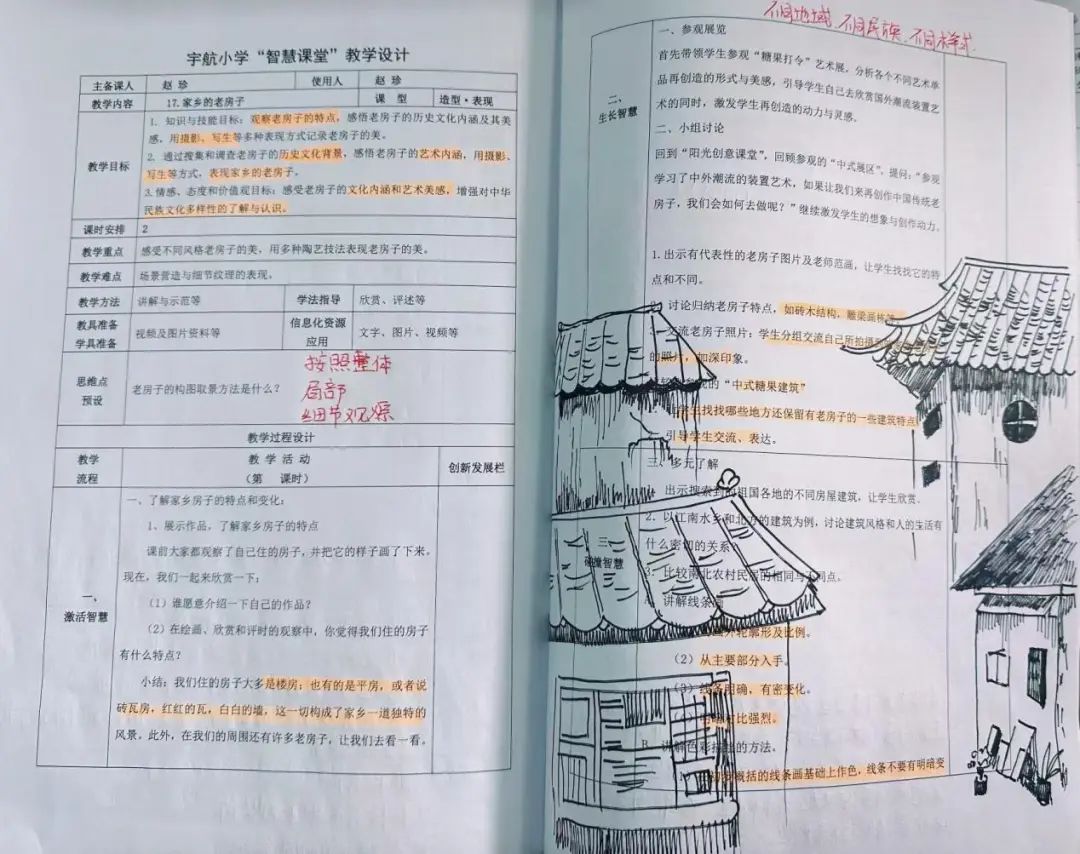 宇航小学“智慧课堂”教学设计
主备课人 赵 珍 使用人 赵 珍
教学内容 17.家乡的老房子 课 型 造型·表现
教学目标
1. 知识与技能目标：观察老房子的特点，感悟老房子的历史文化内涵及其美
感，用摄影、写生等多种表现方式记录老房子的美。
2. 通过搜集和调查老房子的历史文化背景，感悟老房子的艺术内涵，用摄影、
写生等方式，表现家乡的老房子。
3.情感、态度和价值观目标：感受老房子的文化内涵和艺术美感，增强对中华
民族文化多样性的了解与认识。
课时安排 2
教学重点 感受不同风格老房子的美，用多种陶艺技法表现老房子的美。
教学难点 场景营造与细节纹理的表现。
教学方法 讲解与示范等 学法指导 欣赏、评述等
教具准备
学具准备
视频及图片资料等
信息化资源
应用
文字、图片、视频等
思维点
预设
老房子的构图取景方法是什么？
按照整体
局部
细节观察
教学过程设计
教学
流程
教 学 活 动
（第 课时）
创新发展栏
一、
激活智慧
一、了解家乡房子的特点和变化：
1、展示作品，了解家乡房子的特点
课前大家都观察了自己住的房子，并把它的样子画了下来。
现在，我们一起来欣赏一下：
（1）谁愿意介绍一下自己的作品？
（2）在绘画、欣赏和评时的观察中，你觉得我们住的房子
有什么特点？
小结：我们住的房子大多是楼房；也有的是平房，或者说
砖瓦房，红红的瓦，白白的墙，这一切构成了家乡一道独特的
风景。此外，在我们的周围还有许多老房子，让我们去看一看。
不同地域、不同民族、不同样式
二、
生长智慧
一、参观展览
首先带领学生参观“糖果打令”艺术展，分析各个不同艺术单
品再创造的形式与美感，引导学生自己去欣赏国外潮流装置艺
术的同时，激发学生再创造的动力与灵感。
二、小组讨论
回到“阳光创意课堂”，回顾参观的“中式展区”，提问：“参观
学习了中外潮流的装置艺术，如果让我们来再创作中国传统老
房子，我们会如何去做呢？”继续激发学生的想象与创作动力。
1.出示有代表性的老房子图片及老师范画，让学生找找它的特
点和不同。
讨论归纳老房子特点，如砖木结构，雕梁画栋等
3、交流老房子照片：学生分组交流自己所拍摄
的照片，加深印象。
的“中式糖果建筑”
生找找哪些地方还保留有老房子的一些建筑特点
引导学生交流、表达。
三、多元了解
三、
智慧
1. 出示搜索到的祖国各地的不同房屋建筑，让学生欣赏。
2. 以江南水乡和北方的建筑为例，讨论建筑风格和人的生活有
什么密切的关系
3. 比较南北农村民居的相同与不同点。
讲解线条
外轮廓形及比例。
（2）从主要部分入手。
（3）线条明确，有密变化。
对比强烈。
B. 讲解色彩 的方法。
概括的线条画基础上作色，线条不要有明暗变